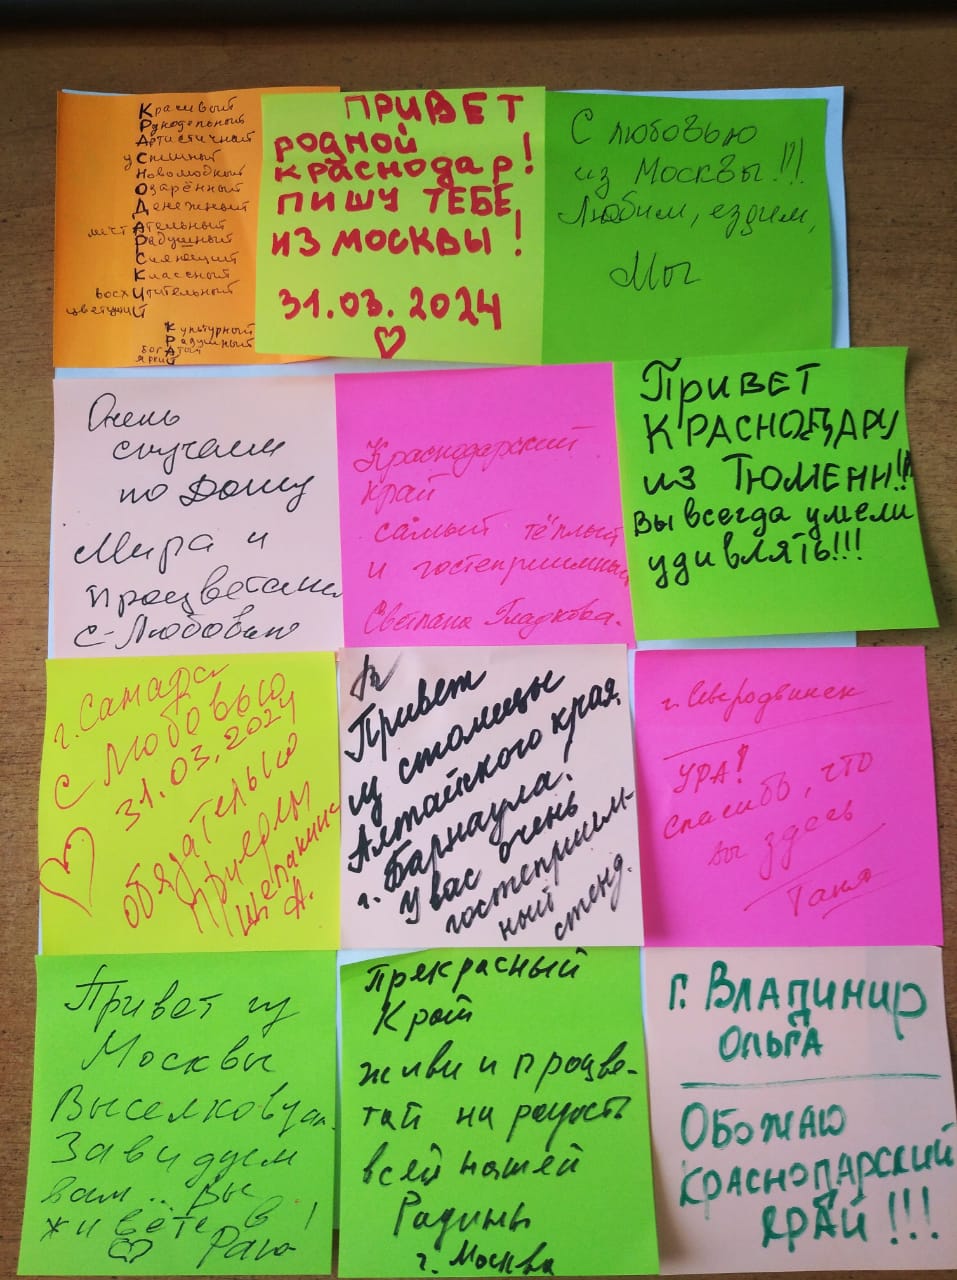 Красивый
Рукодельный
Артистичный
уСпешный
Новомодный
Озарённый
Денежный
мечтАтельный
Радушный
Сияющий
Классный
восхИтительный
цветущиЙ
Культурный
Радушный
богАтый
яркиЙ
ПРИВЕТ
РОДНОЙ
КРАСНОДАР!
ПИШУ ТЕБЕ
ИЗ МОСКВЫ!
31.03.2024
С любовью
из Москвы!!!
Любим, ездим,
Мы
Очень
скучаем
по Дону
Мира и
Процветания
С-Любовью
Краснодарский
край
самый тёплый
и гостеприимный
Светлана Гладкова.
Привет
Краснодару
из Тюмени!!!
Вы всегда умели
удивлять!!!
г. Самара
С Любовью
31.03.2024
обязательно
приедем
Щепакина
А.
Привет
из столицы
Алтайского края
г. Барнаула.
У вас очень
гостеприим-
ный
стенд.
г. Северодвинск
УРА!
спасибо, что
вы здесь
Таня
Привет из
Москвы
Выселковцам.
Завидуем
вам.. Вы
живёте в !
Раю
Прекрасный
Край
живи и процве-
тай на радость
всей нашей
Родины
г. Москва
г. Владимир
Ольга
Обожаю
Краснодарский
край!!!